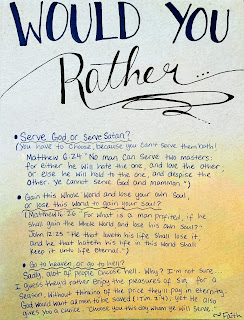 WOULD YOU
Rather...
• Serve God or Serve Satan?
(You have to Choose, because you can't serve them both!
Matthew 6:24 "No man can serve two masters:
for either he will hate the one, and love the other
or else he will hold to the one, and despise the
other. Ye cannot serve God and mammon.")
• Gain this Whole World and lose your own Soul,
or lose this world to gain your soul?
(Matthew 16:26 "For what is a man profited, if he
shall gain the whole world and lose his own Soul?"
John 12:25 "He that loveth his life shall lose it,
and he that hateth his life in this world shall
keep it unto life eternal.")
• Go to heaven or go to hell?
Sadly, alot of people choose hell. Why? I'm not sure...
I guess they'd rather Enjoy the pleasures of Sin for a
Season, Without thinking of the price they'll pay in Eternity.
God would want all men to be saved (1 Tim. 2:4), yet He also
gives you a Choice. "Choose you this day whom ye will Serve."